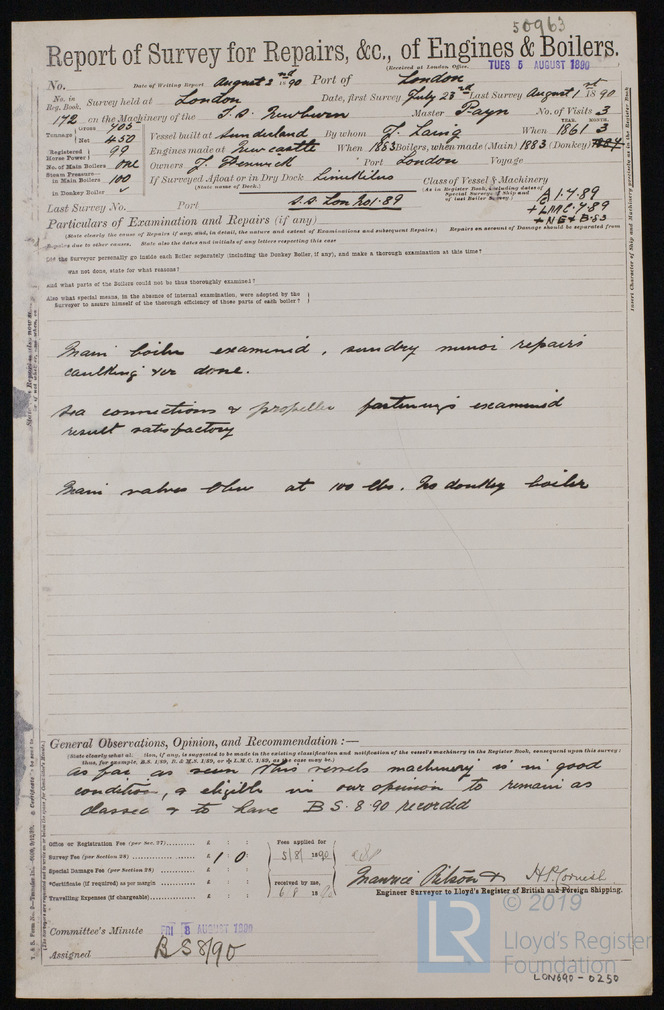 50963
Report of Survey for Repairs, &c., of Engines & Boilers.
(Received at London Office, TUES 5 AUGUST 1890
No. Date of Writing Report August 2nd 1890 Port of London
No. in Reg. Book. Survey held at London Date, first Survey July 23rd Last Survey August 1st 1890
172 on the Machinery of the S.S. Newburn Master Payn No. of Visits 3
Tonnage Gross 705 Net 450 Vessel built at Sunderland By whom J. Laing When 1861 YEAR. MONTH. 3
Registered Horse Power 99 Engines made at Newcastle When 1883 Boilers, when made (Main) 1883 (Donkey)
No. of Main Boilers one Owners J. Fenwick Port London Voyage
Steam Pressure in Main Boilers 100 If Surveyed Afloat or in Dry Dock Limekilns Class of Vessel & Machinery
in Donkey Boiler (State name of Dock.) (As in Register Book, including dates of Special Surveys of Ship and of last Boiler Survey.) A 1. 4. 89
Last Survey No. Port S.S. Lon No1. 89 + LMC. 4.89
+ NE & B. 83
Particulars of Examination and Repairs (if any)
(State clearly the cause of Repairs if any, and, in detail, the nature and extent of Examinations and subsequent Repairs; Repairs on account of Damage should be separated from
Repairs due to other causes. State also the dates and initials of any letters respecting this case
Did the Surveyor personally go inside each Boiler separately (including the Donkey Boiler, if any), and make a thorough examination at this time?
was not done, state for what reasons?
And what parts of the Boilers could not be thus thoroughly examined?
Also what special means, in the absence of internal examination, were adopted by the
Surveyor to assure himself of the thorough efficiency of those parts of each boiler?
Main boiler examined, sundry minor repairs
caulking &c done.
Sea connections & propeller fastenings examined
result satisfactory
Main valves blew at 100 lbs. No donkey boiler
General Observations, Opinion, and Recommendation :—
thus, for example, B.S. 1/89, B. & M.S. 1/89, or L.M.C. 1/89, as the case may be.)
As far as seen this vessels machinery is in good
condition, & eligible in our opinion to remain as
classed & to have B S. 8 90 recorded
Office or Registration Fee (per Sec. 27) £ : :
Survey Fee (per Section 28) £ 1 : 0 :
Special Damage Fee (per Section 28) £ : :
*Certificate (if required) as per margin £ : :
Travelling Expenses (if chargeable) £ : :
Fees applied for
5/8/1890
received by me,
6/8 1890
Maurice Wilson & H.P. Cornish
Engineer Surveyor to Lloyd's Register of British and Foreign Shipping.
Committee's Minute FRI 8 AUGUST 1890
Assigned B S 8/90
LR © 2019
Lloyd's Register
Foundation
LON690-0250
Insert Character of Ship and Machinery precisely as in the Register Book